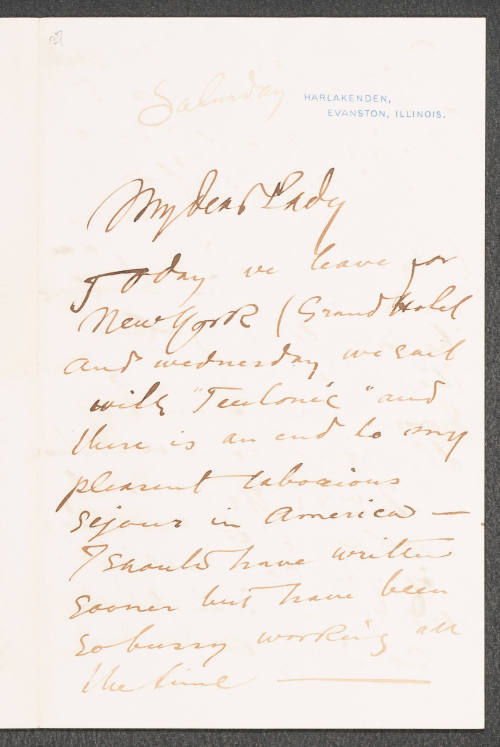 Saturday
HARLAKENDEN,
EVANSTON, ILLINOIS.
My dear Lady
Today we leave for
New York (Grand Hotel
and wednesday we sail
with "Teutonic" and
there is an end to my
pleasent laborious
sejour in America —
I should have written
sooner but have been
so bussy working all
the time —